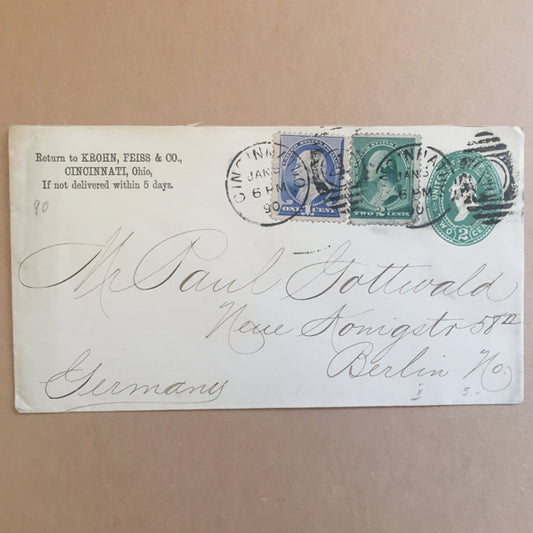 Return to KROHN, FEISS & CO.,
CINCINNATI, Ohio,
If not delivered within 5 days.
90
CINCINNA
JAN 6
6 PM
90
ONE 1 CENT
TWO 2 CENTS
CINNA
JAN 6
6 PM
90
TWO 2 CE
Mr Paul Gottwald
Neue Königstr 58 II
Berlin No.
Germany